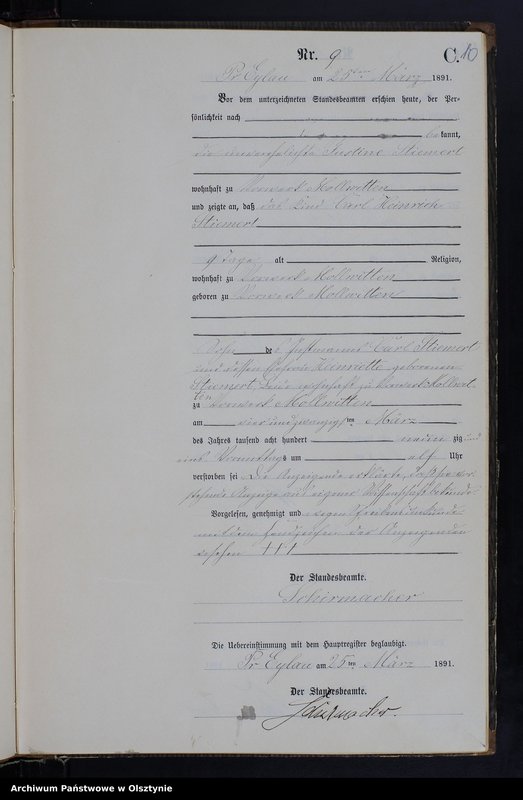 Nr. 9
C.
10
Pr Eylau am 25ten März 1891.
Vor dem unterzeichneten Standesbeamten erschien heute, der Per-
sönlichkeit nach
be kannt,
die unverehelichte Justine Stiemert
wohnhaft zu Vorwerk Mollwitten
und zeigte an, daß das Kind Carl Heinrich
Stiemert
9 Tage alt Religion,
wohnhaft zu Vorwerk Mollwitten
geboren zu Vorwerk Mollwitten
Sohn des Instmanns Carl Stiemert
und dessen Ehefrau Heinriette geborenen
Stiemert, wohnhaft zu Vorwerk Mollwit-
ten
zu Vorwerk Mollwitten
am vierundzwanzigsten März
des Jahres tausend acht hundert neun zig und
eins Vormittags um elf Uhr
verstorben sei. Die Anzeigende erklärte, daß sie vor-
stehende Anzeige aus eigener Wissenschaft bekunde.
Vorgelesen, genehmigt und wegen Schreibens Unkunde
mit dem Handzeichen der Anzeigenden
versehen +++
Der Standesbeamte.
Schirmacher
Die Uebereinstimmung mit dem Hauptregister beglaubigt.
Pr Eylau am 25ten März 1891.
Der Standesbeamte.
Schirmacher.
Archiwum Państwowe w Olsztynie